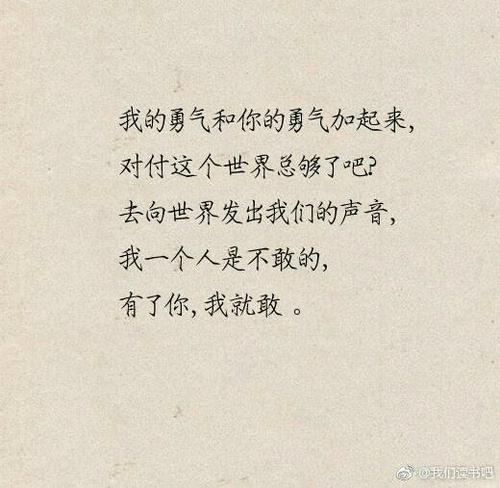 我的勇气和你的勇气加起来,
对付这个世界总够了吧?
去向世界发出我们的声音,
我一个人是不敢的,
有了你,我就敢 。
@我们读书吧